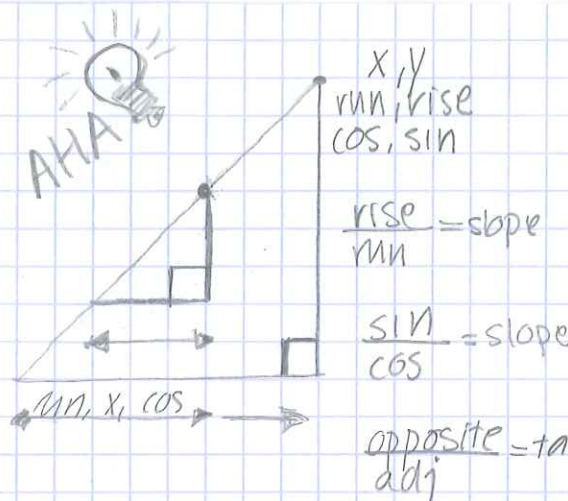 AHA
x, y
run, rise
cos, sin
rise
run
=slope
sin
cos
=slope
run, x, cos
opposite
adj
=ta